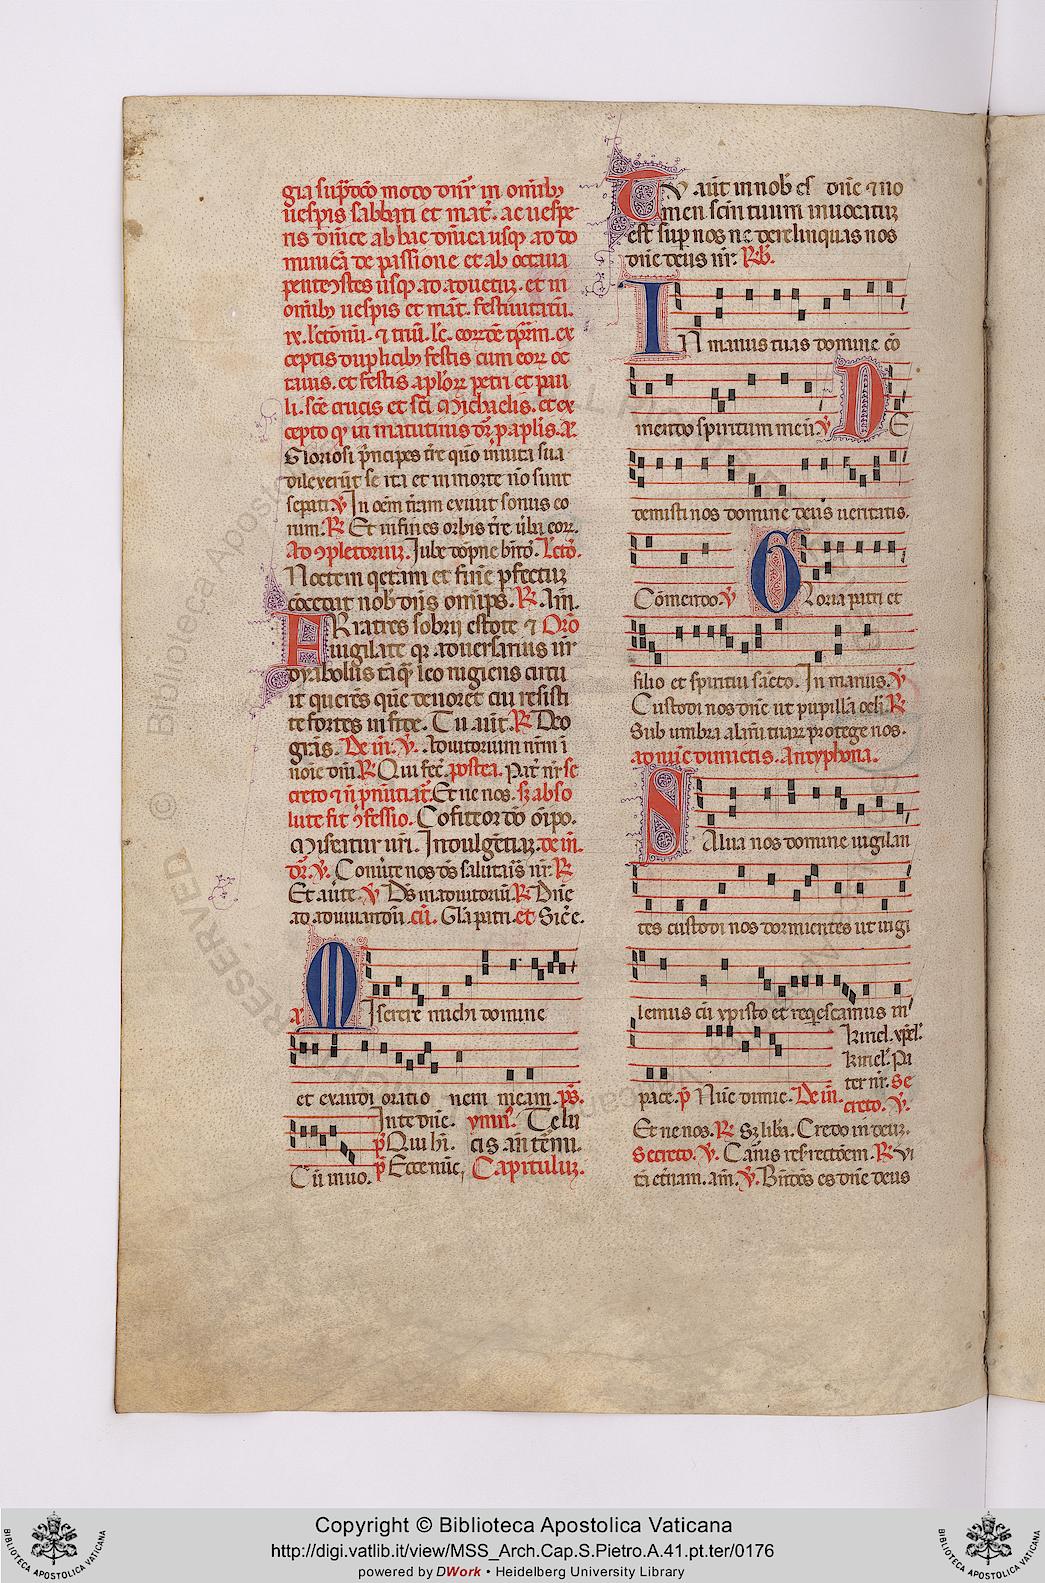 gia supradcō modo dnr̄ in omnib;
uespis sabbati et mat̄. ac uespe
ris dnīce ab hac dnīca usq; ad do
minicā de passione et ab octaua
pentecostes usq; ad aduentuz. et in
omnib; uespis et mat̄. festiuitatū.
ceptis duplicib; festis cum eorꝝ oc
tauis. et festis aplorꝝ petri et pau
li. scē crucis et scī michaelis. et ex
cepto qʼ in matutinis dr̄ p
Gloriosi p̄ncipes tr̄e quō in uita sua
dilexerūt se ita et in morte nō sunt
sepati ℣ In oēm tr̄am exiuit sonus eo
rum. ℟ Et in fines orbis tr̄e ūba eorꝝ.
Ad ꝯpletoriuz. Iube dōpne bn̄dō.
Noctem qetam et finē pfectuz
cōcedat nob̄ dn̄s omīps. ℟. Am̄.
FRatres sobrij estote ⁊
uigilate qʼ aduersarius ur̄
dyabolus tāqʼ leo rugiens circu
it querēs quē deuoret cui resisti
te fortes in fide. Tu aūt. ℟ Deo
grās. De in. ℣. Adiutorium nr̄m ī
noīe dnī. ℟ Qui fec̄. postea. Pat̄ nr̄ se
creto Et ne nos. s; abso
lute fit ꝯfessio. Cofiteor dō oīpo.
Misereatur uri. Indulgētiaz. de in.
℣. Conūte nos ds̄ salutaris nr̄. ℟
Et aūte. ℣ Ds̄ in adiutoriū. ℟ Dnē
ad adiuuandū. cū. Glā patri. et Sic̄ e.
MIserere michi domine
et exaudi orationem meam. ps̄.
Cū inuo. p̄ Inte dnē. ymn̄. Te lu
p̄ Qui hī. cis an̄ termi.
p̄ Ecce nūc, Capituluz.
TU aūt in nob̄ es dnē ⁊ no
men scm̄ tuum inuocatuz
est sup nos ne derelinquas nos
dnē deus nr̄. ℟b̄.
IN manus tuas domine cō
mendo spiritum meū ℣ DE
demisti nos domine deus ueritatis.
Cōmendo. ℣ Gloria patri et
filio et spiritui sācto. In manus. ℣
Custodi nos dnē ut pupillā ocli. ℟
Sub umbra alarū tuarꝝ protege nos.
ad nūc dimictis. Antyphona.
SAlua nos domine uigilan
tes custodi nos dormientes ut uigi
lemus cū xpisto et reqescamus in
pace. p̄ Nūc dimic. De in.
kirieł. xpeł.
kirieł. Pa
ter nr̄. se
creto. ℣.
Et ne nos. ℟ S; liba. Credo in deuz.
Secreto. ℣. Carnis resurectōem. ℟ Vi
tā etnam. am̄. ℣. Bn̄dcs es dnē deus
Copyright © Biblioteca Apostolica Vaticana
http://digi.vatlib.it/view/MSS_Arch.Cap.S.Pietro.A.41.pt.ter/0176
powered by DWork • Heidelberg University Library
BIBLIOTECA APOSTOLICA VATICANA
BIBLIOTECA APOSTOLICA VATICANA